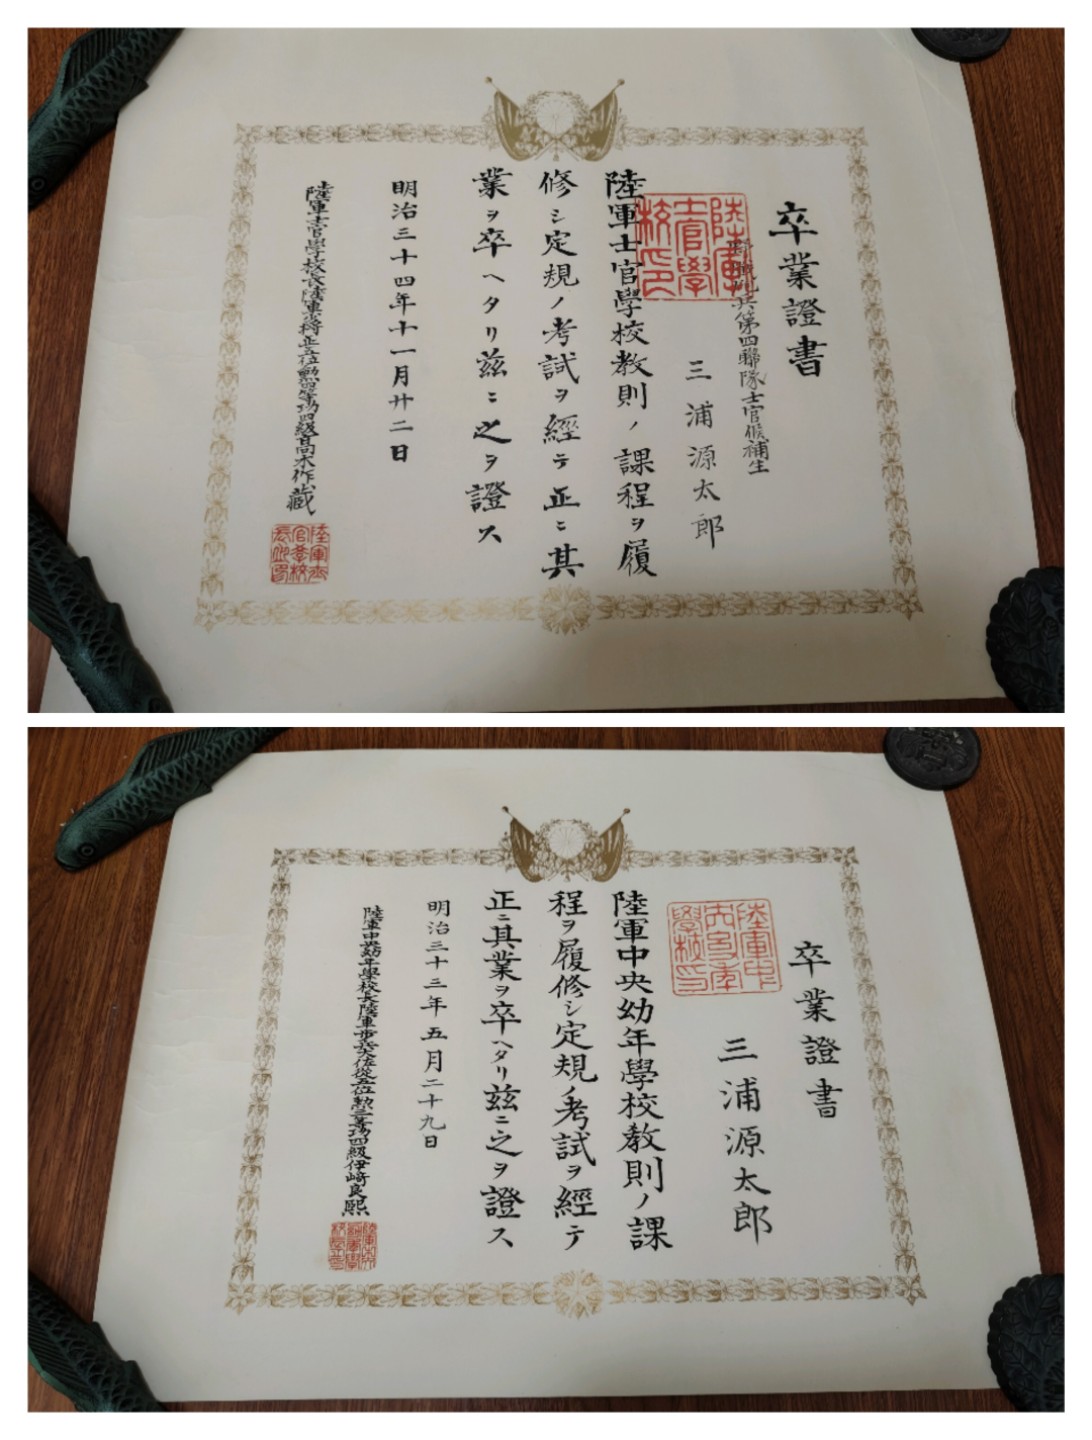 卒業證書
砲兵第四聯隊士官候補生
三浦源太郎
陸軍士官學校教則ノ課程ヲ履
修シ定規ノ考試ヲ經テ正ニ其
業ヲ卒ヘタリ茲ニ之ヲ證ス
明治三十四年十一月廿二日
陸軍士官學校長陸軍少將正五位勲四等功四級高木作藏
陸軍士官學校印
卒業證書
三浦源太郎
陸軍中央幼年學校教則ノ課
程ヲ履修シ定規ノ考試ヲ經テ
正ニ其業ヲ卒ヘタリ茲ニ之ヲ證ス
明治三十三年五月二十九日
陸軍中央幼年學校長陸軍歩兵大佐從五位勲三等功四級伊崎良熙